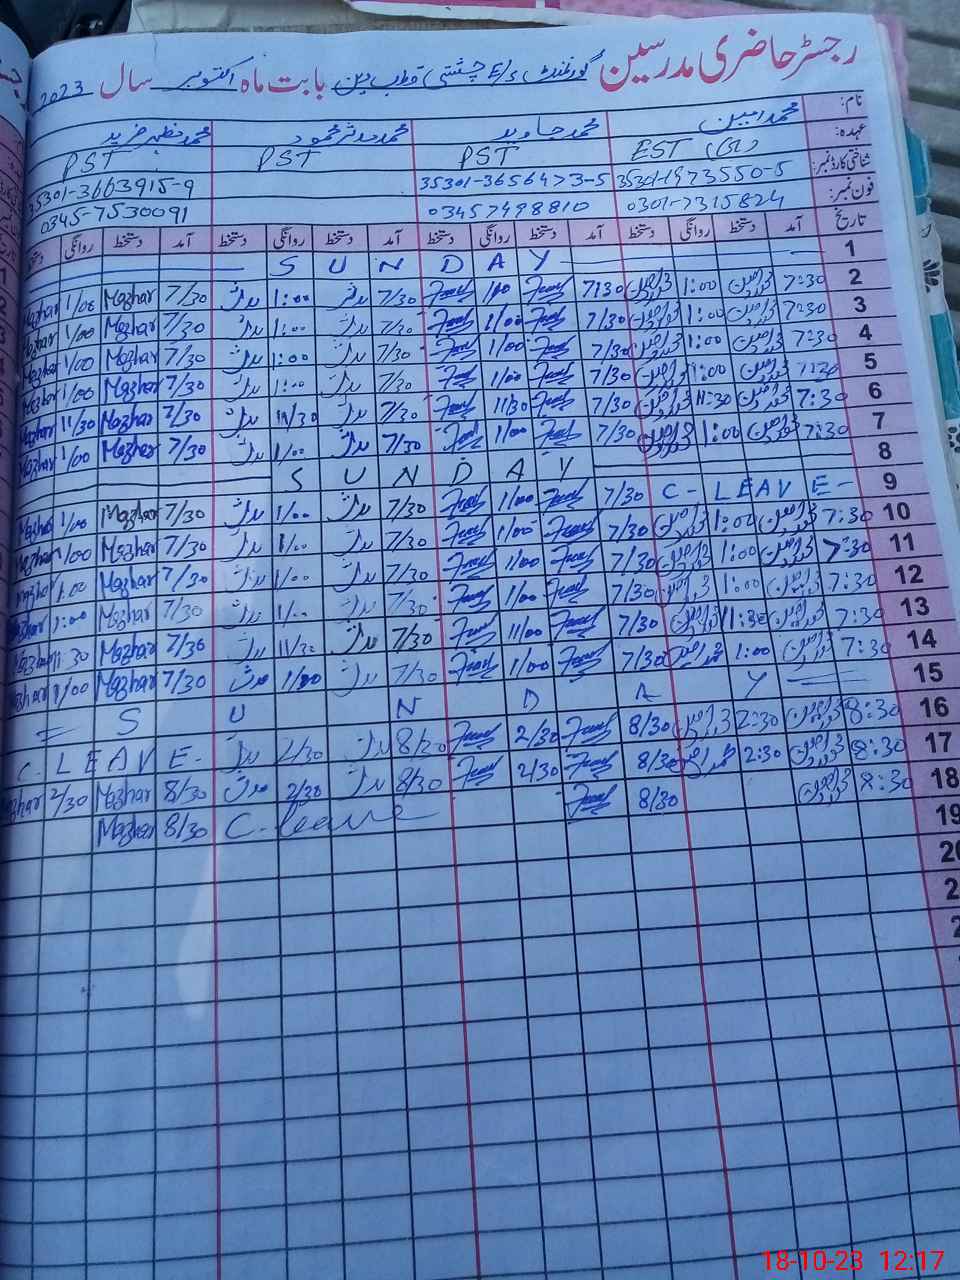 رجسٹر حاضری مدرسین گورنمنٹ E/S چشتی قطب دین بابت ماہ اکتوبر سال 2023
نام: محمد امین محمد جاوید محمد مدثر محمود محمد مظہر فرید
عہدہ: EST PST PST PST
شناختی کارڈ نمبر: 35301-1973550-5 35301-3656473-5 35301-3663915-9
فون نمبر: 0301-7315824 03457498810 0345-7530091
تاریخ آمد دستخط روانگی دستخط آمد دستخط روانگی دستخط آمد دستخط روانگی دستخط آمد دستخط روانگی دستخط
1 SUNDAY
2 7:30 1:00 7/30 1/00 7/30 مدثر 1:00 مدثر 7/30 Mazhar 1/00 Mazhar
3 7:30 1:00 7/30 1/00 7/30 مدثر 1:00 مدثر 7/30 Mazhar 1/00 Mazhar
4 7:30 1:00 7/30 1/00 7/30 مدثر 1:00 مدثر 7/30 Mazhar 1/00 Mazhar
5 7:30 1:00 7/30 1/00 7/30 مدثر 1:00 مدثر 7/30 Mazhar 1/00 Mazhar
6 7:30 11:30 7/30 11/30 7/30 مدثر 11/30 مدثر 7/30 Mazhar 11/30 Mazhar
7 7:30 1:00 7/30 1/00 7/30 مدثر 1/00 مدثر 7/30 Mazhar 1/00 Mazhar
8 SUNDAY
9 C-LEAVE- 7/30 1/00 7/30 مدثر 1/00 مدثر 7/30 Mazhar 1/00 Mazhar
10 7:30 1:00 7/30 1/00 7/30 مدثر 1/00 مدثر 7/30 Mazhar 1/00 Mazhar
11 7:30 1:00 7/30 1/00 7/30 مدثر 1/00 مدثر 7/30 Mazhar 1:00 Mazhar
12 7:30 1:00 7/30 1/00 7/30 مدثر 1/00 مدثر 7/30 Mazhar 1:00 Mazhar
13 7:30 11:30 7/30 11/00 7/30 مدثر 11/30 مدثر 7/30 Mazhar 11:30 Mazhar
14 7:30 1:00 7/30 1/00 7/30 مدثر 1/00 مدثر 7/30 Mazhar 1/00 Mazhar
15 SUNDAY
16 8:30 2:30 8/30 2/30 8/30 مدثر 2/30 مدثر C-LEAVE-
17 8:30 2:30 8/30 2/30 8/30 مدثر 2/30 مدثر 8/30 Mazhar 2/30 Mazhar
18 8:30 8/30 C-leave 8/30 Mazhar
19
20
18-10-23 12:17